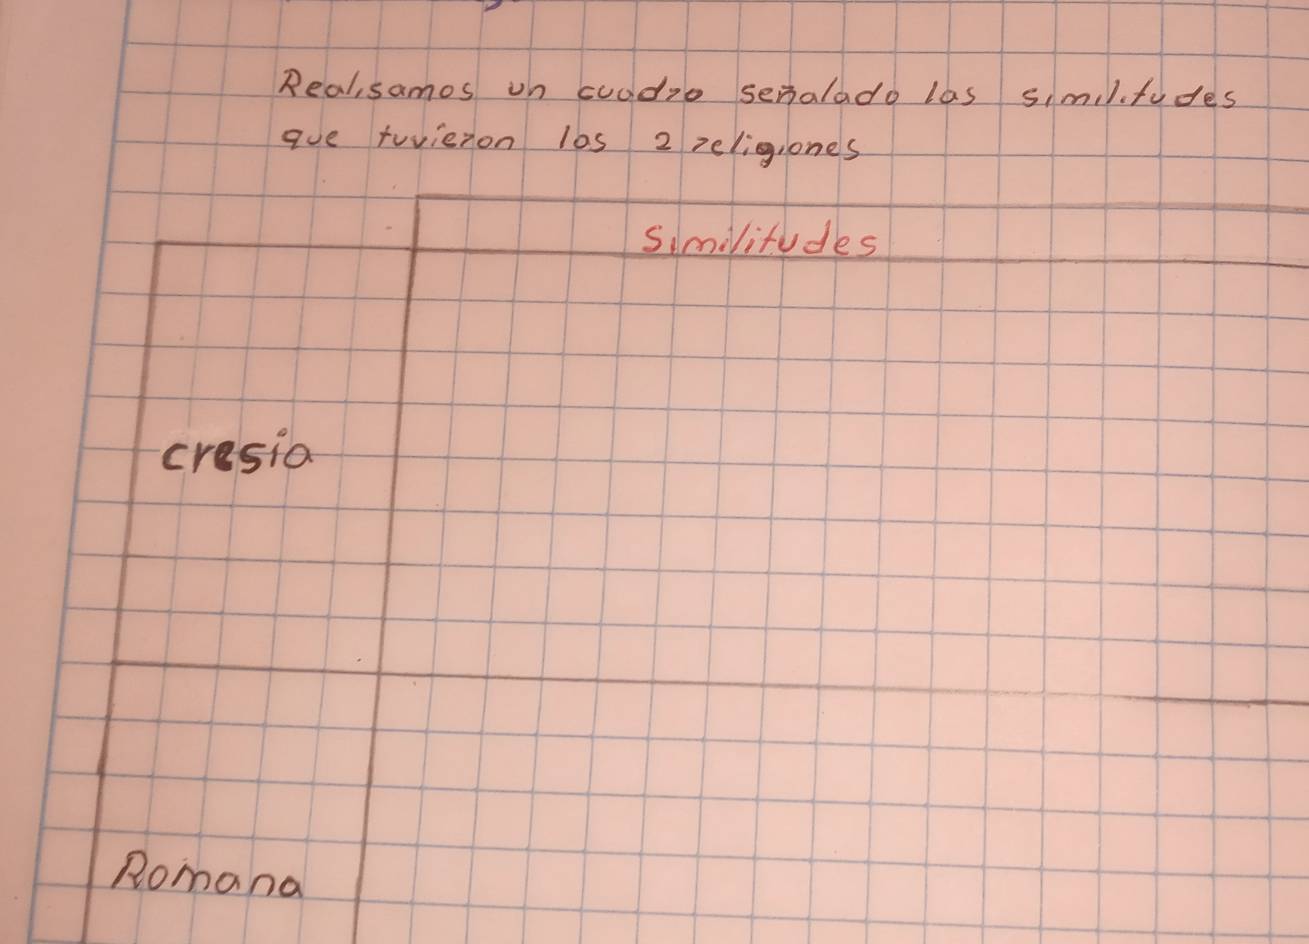 Realisamos un cuadro señalado las similitudes
que tuvieron las 2 religiones
Similitudes
cresia
Romana